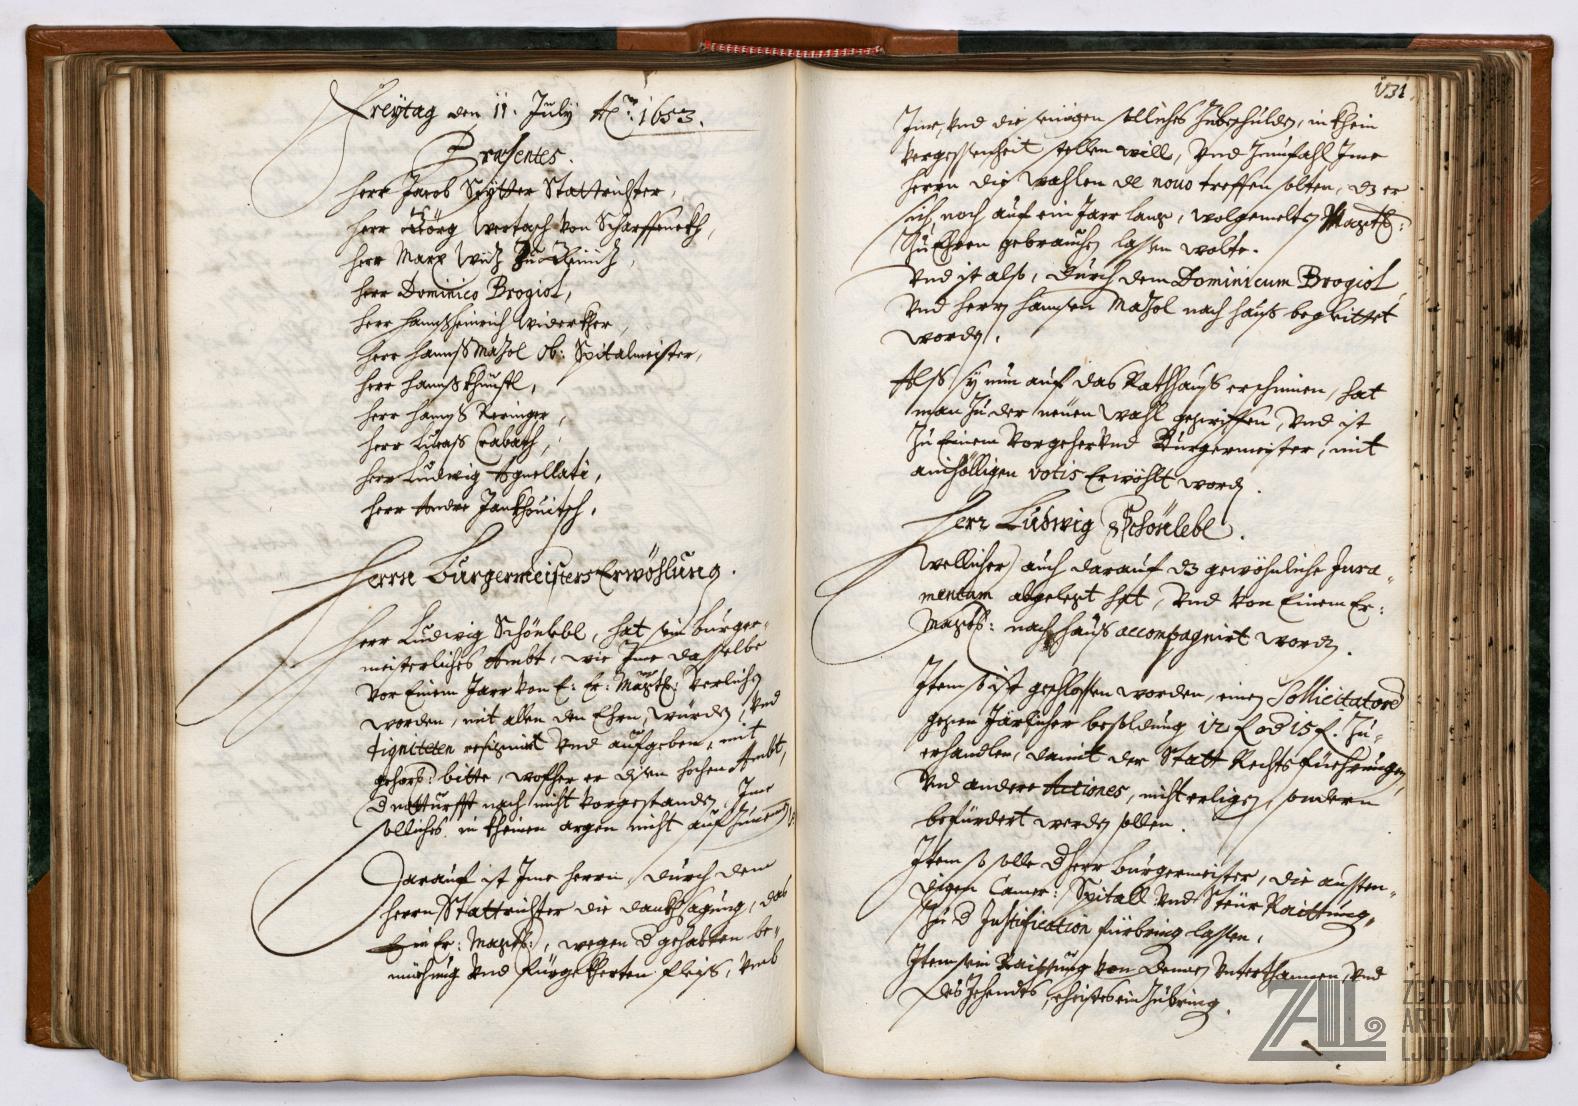 Freÿtag den 11. Julÿ Aõ: 1653.
Præsentes.
Herr Jacob Stattrichter,
Herr Görg Wertasch von Scharffenekh,
Herr Marx Wiz zu
Herr Dominico Brogiol,
Herr Hannßheinrich Widerkher,
Herr Hannß Mazol ob: Spitalmeister,
Herr Hannß Khünstl,
Herr Hannß Reringer,
Herr Lucaß Crabath,
Herr Ludwig Agnellati,
Herr Andre Jankhouitsch,
Herrn Burgermeisters Erwöhlung.
Herr Ludwig Schönlebl, hat sein burger-
meisterliches Ambt, wie Jme dasselbe
vor Einem Jarr von E: Er: Magth: verlichen
worden, mit allen den Ehrn, würden, vnd
digniteten resignirt vnd aufgeben, mit
gehors: bitte, wofher er disem hochen Ambt,
d notturfft nach nicht vorgestanden, Jme
solliches in kheinen argen nicht
Darauf ist Jme herrn, durch den
herrn Stattrichter die danksagung, das
Ein Er: Magth:, wegen d gehabten be-
müehung vnd fürgekherten fleiß, vmb
131
Jme, vnd die seinigen solliches zubeschulden, in khein
vergessenheit stellen will, vnd zumfahl Jme
herrn die wahlen de nouo treffen solten, dz er
sich noch auf ein Jarr lang, wolgemelten Magth:
zu Ehren gebrauchen lassen wolte.
Vnd ist also, durch dem Dominicum Brogiol,
vnd herrn hannsen Mazol nach hauß begleittet
worden.
Alß sÿ nun auf das Rathhauß erschinnen, hat
man zu der neuen wahl gegriffen, vnd ist
zu Einem vorgeher vnd Burgermeister, mit
ainhölligen votis Erwöhlt worden.
Herr Ludwig Schönlebl.
Wellicher auch darauf dz gewöhnliche Jura-
mentum abgelegt hat, vnd von Einem Er:
Magth: nach hauß accompagnirt worden.
Jtem so ist geschlossen worden, einen Sollicitatorn
gegen Järlicher besoldung 12 f. od 15 f. zu-
erhandlen, damit der Statt Rechtsfüehrungen,
vnd andere Actiones, nicht erligen, sondern
befürdert werden sollen.
Jtem so solle d Herr burgermeister, die aussten-
digen Camer: Spitall vnd Steür Raittung,
zu d Justification fürbring lassen,
Jtem sein Raittung von denen vnterthannen, vnd
des Zehendts, ehistes einzubring.
ZAL ZGODOVINSKI
ARHIV
LJUBLJANA